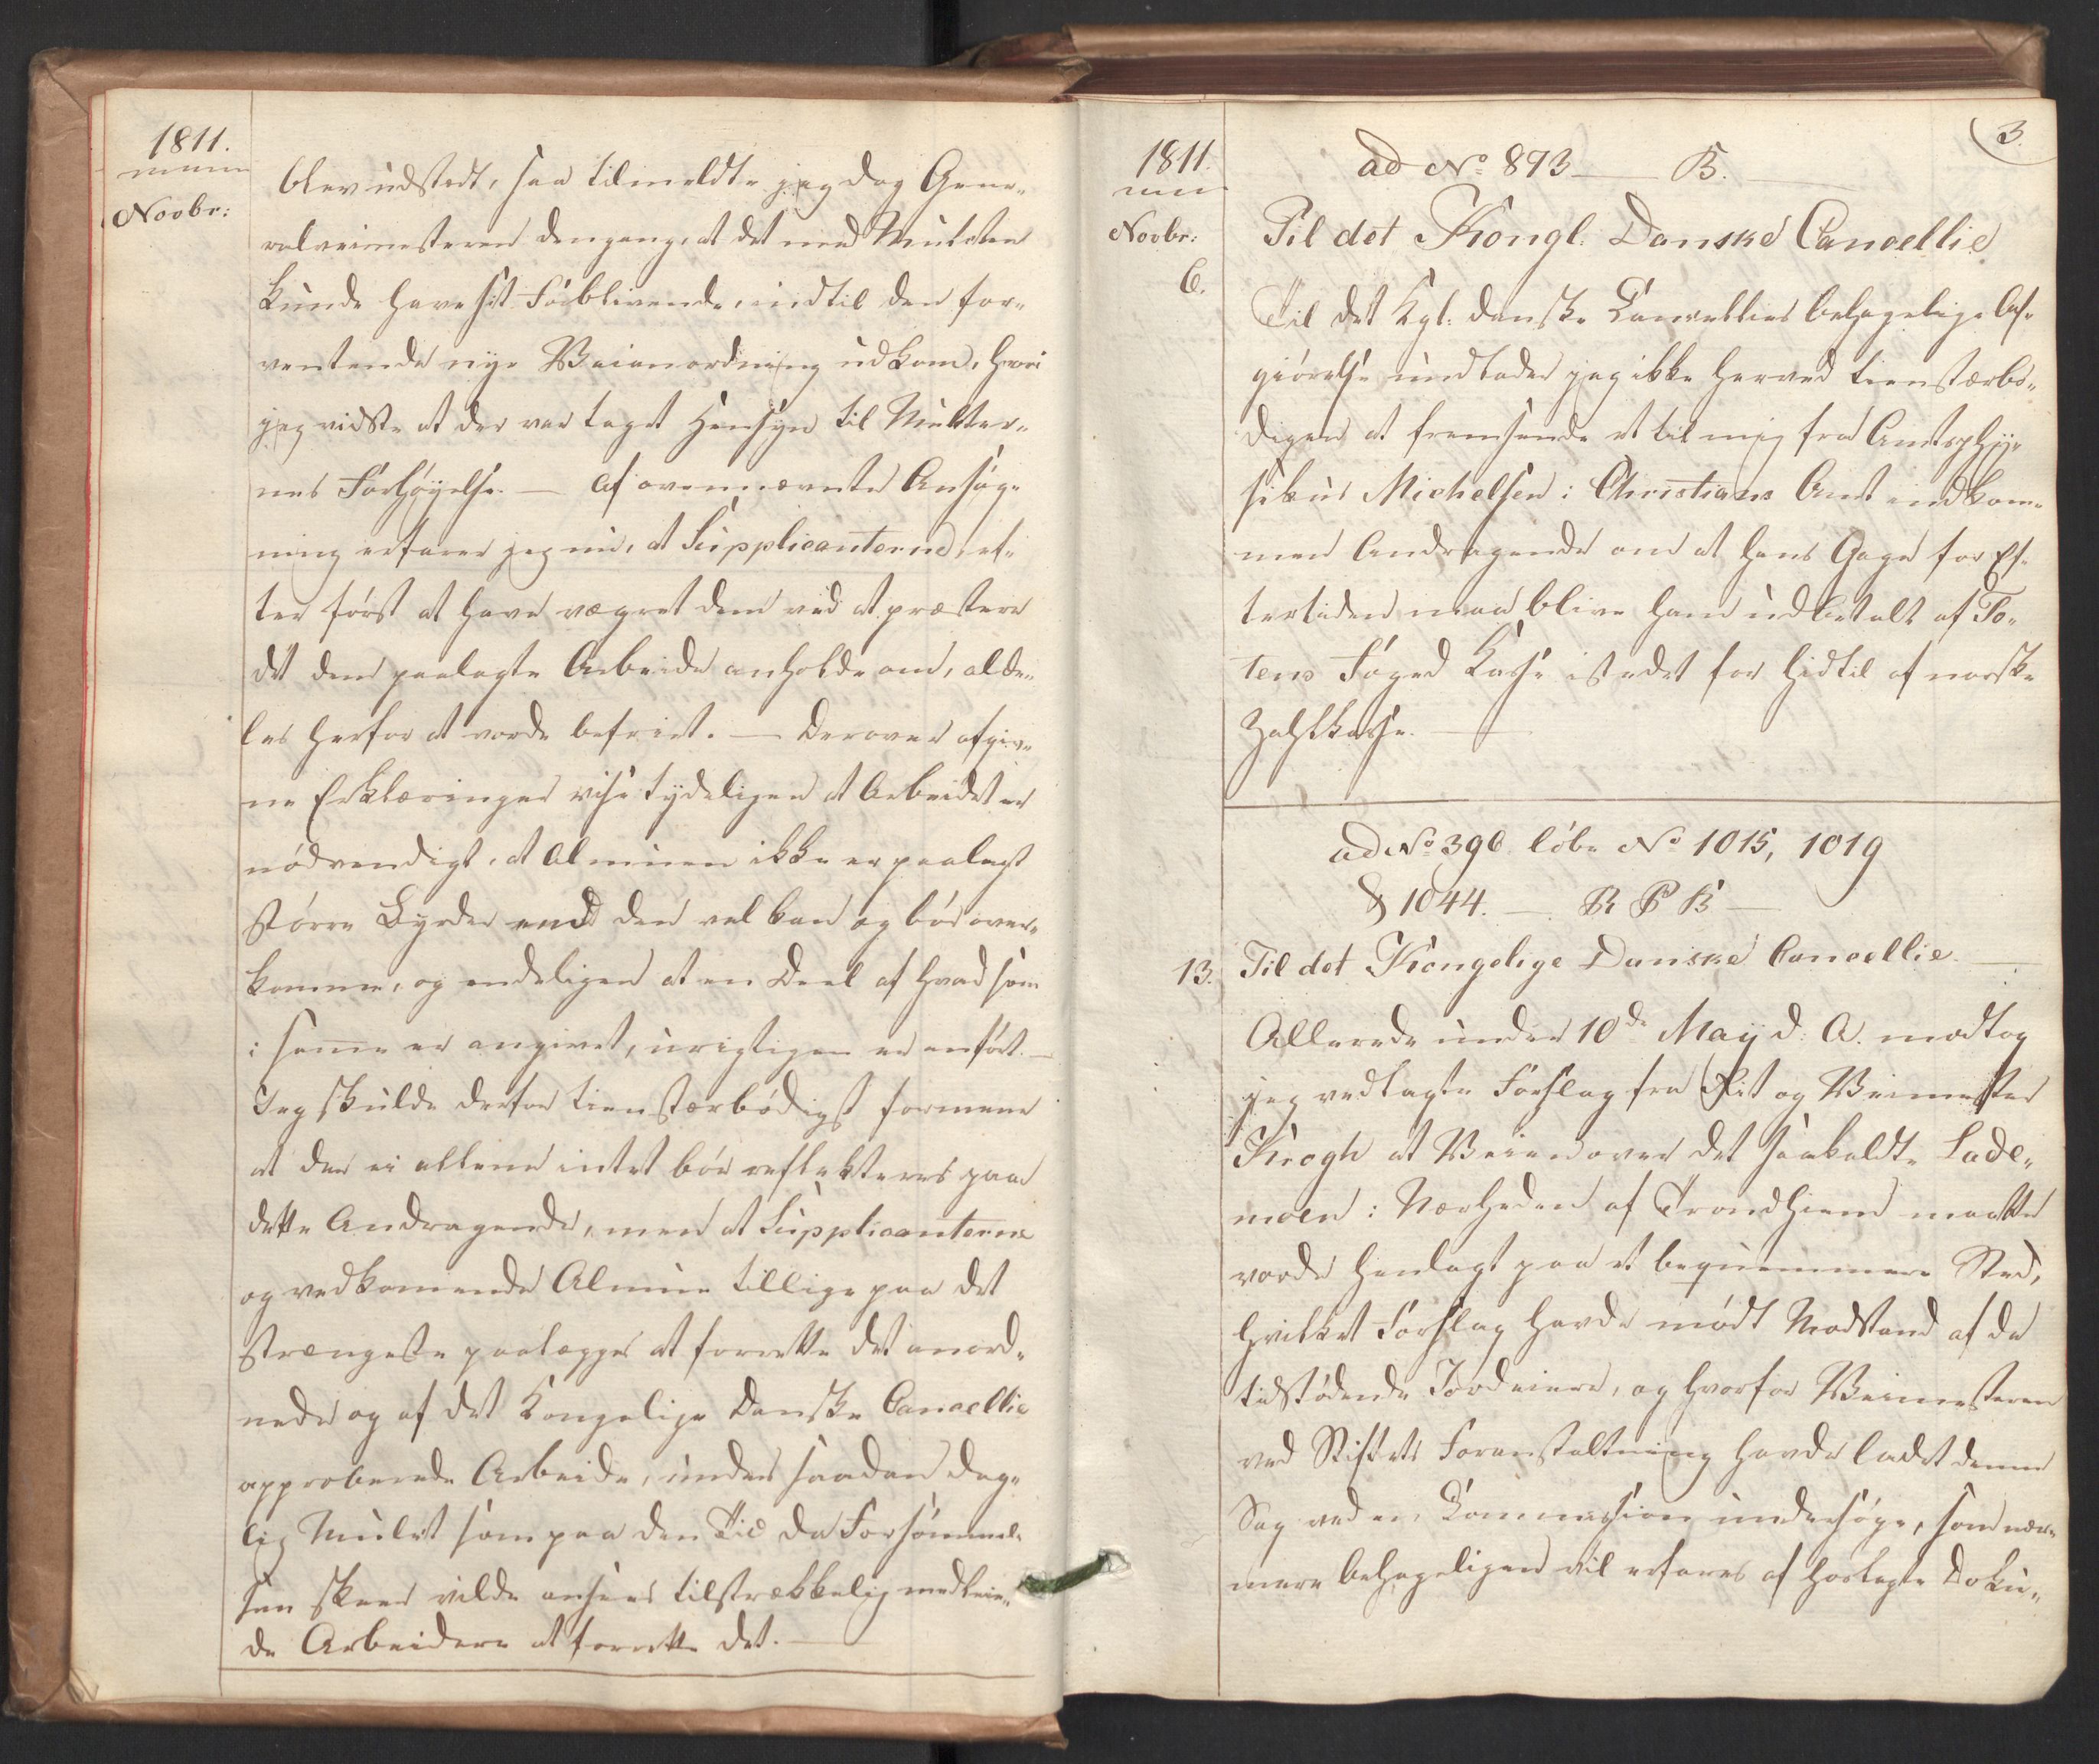 1811.
Novbr:
blev udstædt, saa tilmeldte jeg dog Gene-
ralveimesteren dengang, at det med Mulcten
kunde have sit Forblivende, indtil den for-
ventende nye Veianordning udkom, hvori
jeg vidste at der var taget Hensyn til Mulcter-
nes Forhøyelse. — Af ovennævnte Ansøg-
ning erfarer jeg nu, at Supplicanterne, ef-
ter først at have vægret dem ved at præstere
det dem paalagte Arbeide anholde om, aldee-
les herfor at vorde befriet. — Derover afgiv-
ne Erklæringer vise tydeligen at Arbeidet er
nødvendigt, at Almuen ikke er paalagt
større Byrder end den vel kan og bør over-
komme, og endeligen at en Deel af hvad som
i samme er angivet, urigtigen er anført. —
Jeg skulde derfor tienstærbødigst formene
at der ei allene intet bør reflekteres paa
dette Andragende, men at Supplicanterne
og vedkommende Almue tillige paa det
strængeste paalægges at forrette det anord-
nede og af det Kongelige Danske Cancellie
approberede Arbeide, under saadan dag-
lig Mulct som paa den Tid da Forsømmel-
sen skeer vilde ansees tilstrækkelig med leie-
de Arbeidere at forrette det. —
3.
1811.
Novbr:
ad No 893 — B. —
Til det Kongl. Danske Cancellie
6.
Til det Kgl: danske Cancellies behagelige Af-
giørelse undlader jeg ikke herved tienstærbø-
digen at fremsende et til mig fra Amtsphy-
sikus Michelsen i Christians Amt indkom-
men Andragende om at hans Gage for Ef-
tertiden maa blive ham udbetalt af To-
tens Foged Kasse istedet for hidtil af norske
Zahlkasse. —
ad No 396 løbe No 1015, 1019
& 1044. — R P B —
13. Til det Kongelige Danske Cancellie. —
Allerede under 10de May d: A. modtog
jeg vedlagte Forslag fra Rit og Veimester
Krogh at Veien over det saakaldte Lade-
moen i Nærheden af Trondhiem maatte
vorde henlagt paa et beqvemmere Sted,
hvilket Forslag havde mødt Modstand af de
tilstødende Jordeiere, og hvorfor Veimesteren
ved Stiftets Foranstaltning havde ladet denne
Sag ved en Commission undersøge, som nær-
mere behageligen vil erfares af hoslagte Doku-